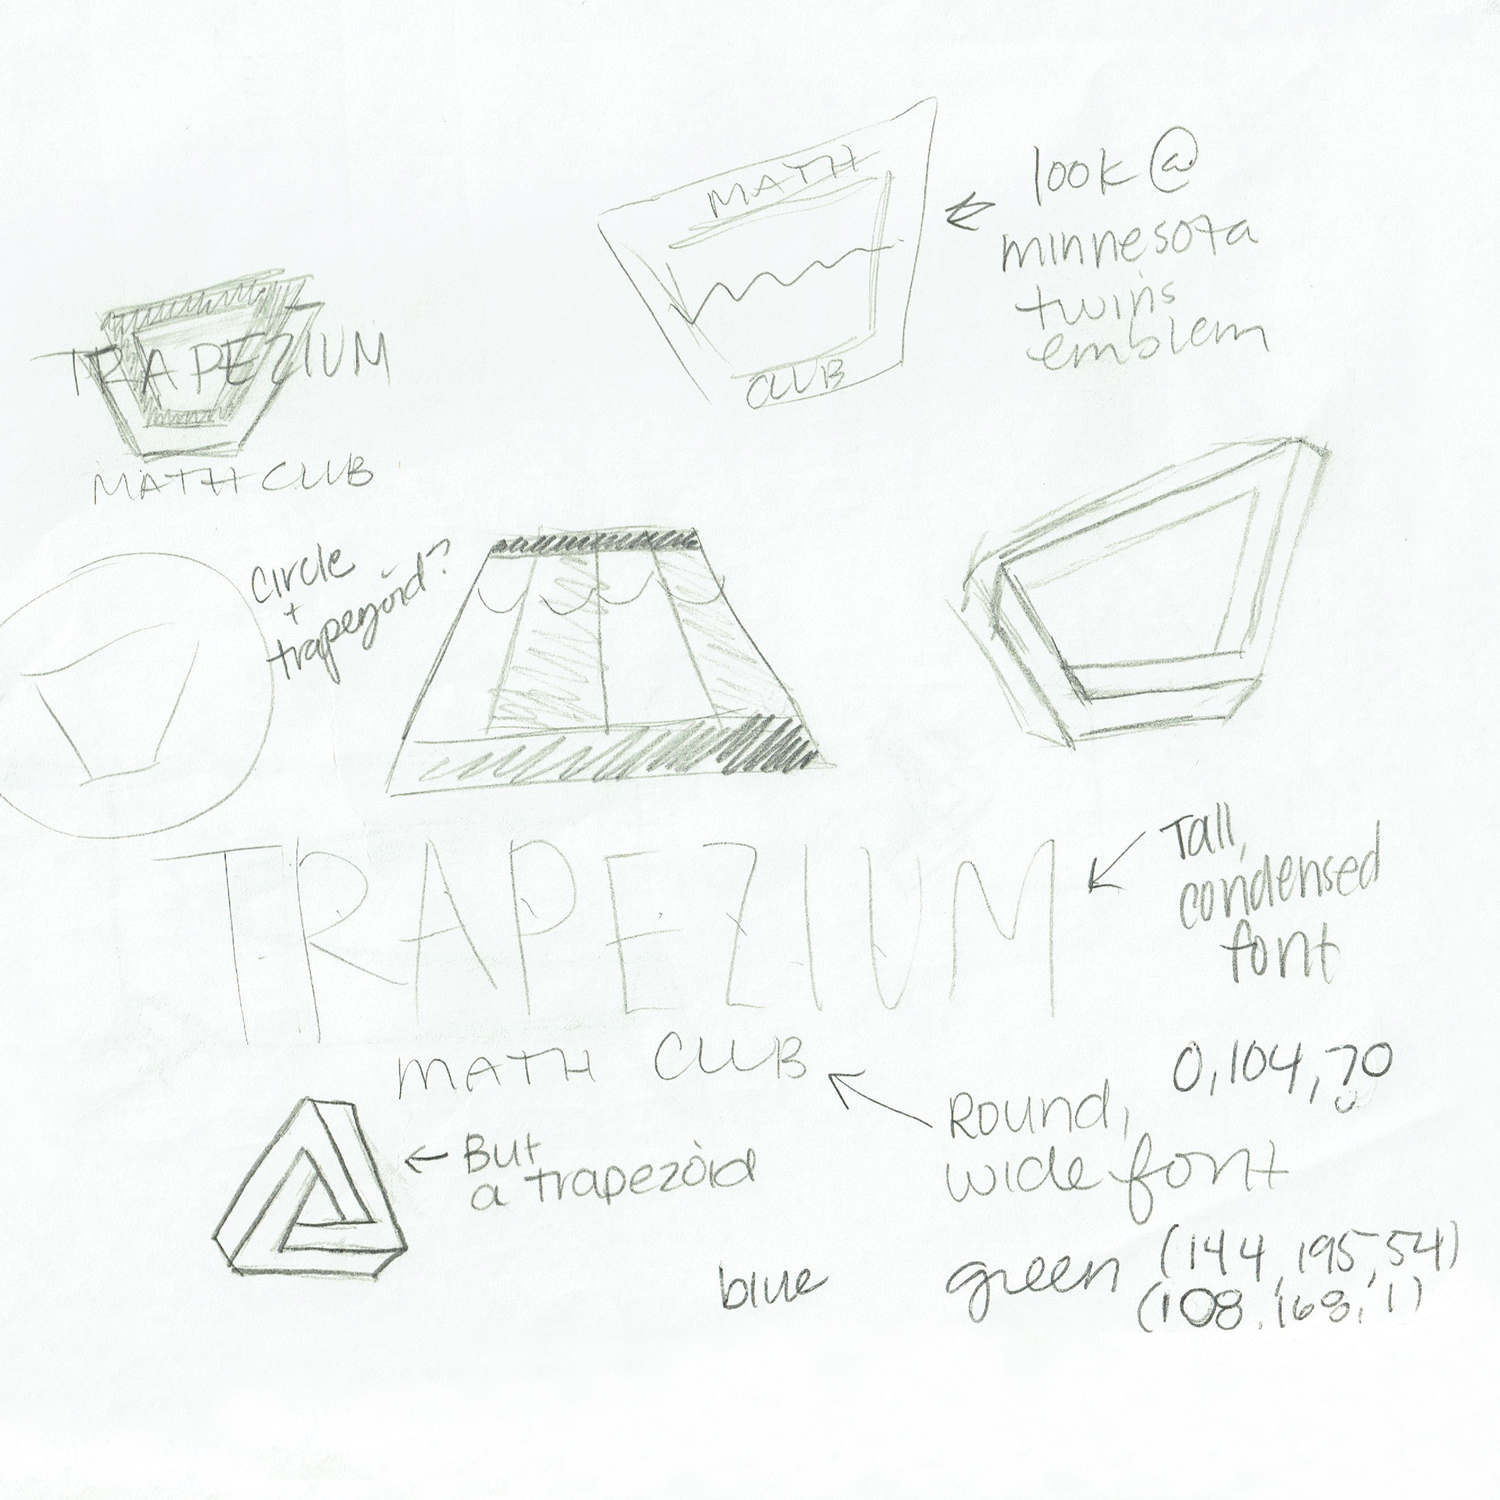 MATH
CLUB
look @
minnesota
twins
emblem
TRAPEZIUM
MATH CLUB
circle
+
trapezoid?
TRAPEZIUM
Tall,
condensed
font
MATH CLUB
Round,
wide font
0,104,70
But
a trapezoid
blue
green (144,195,54)
(108,168,1)